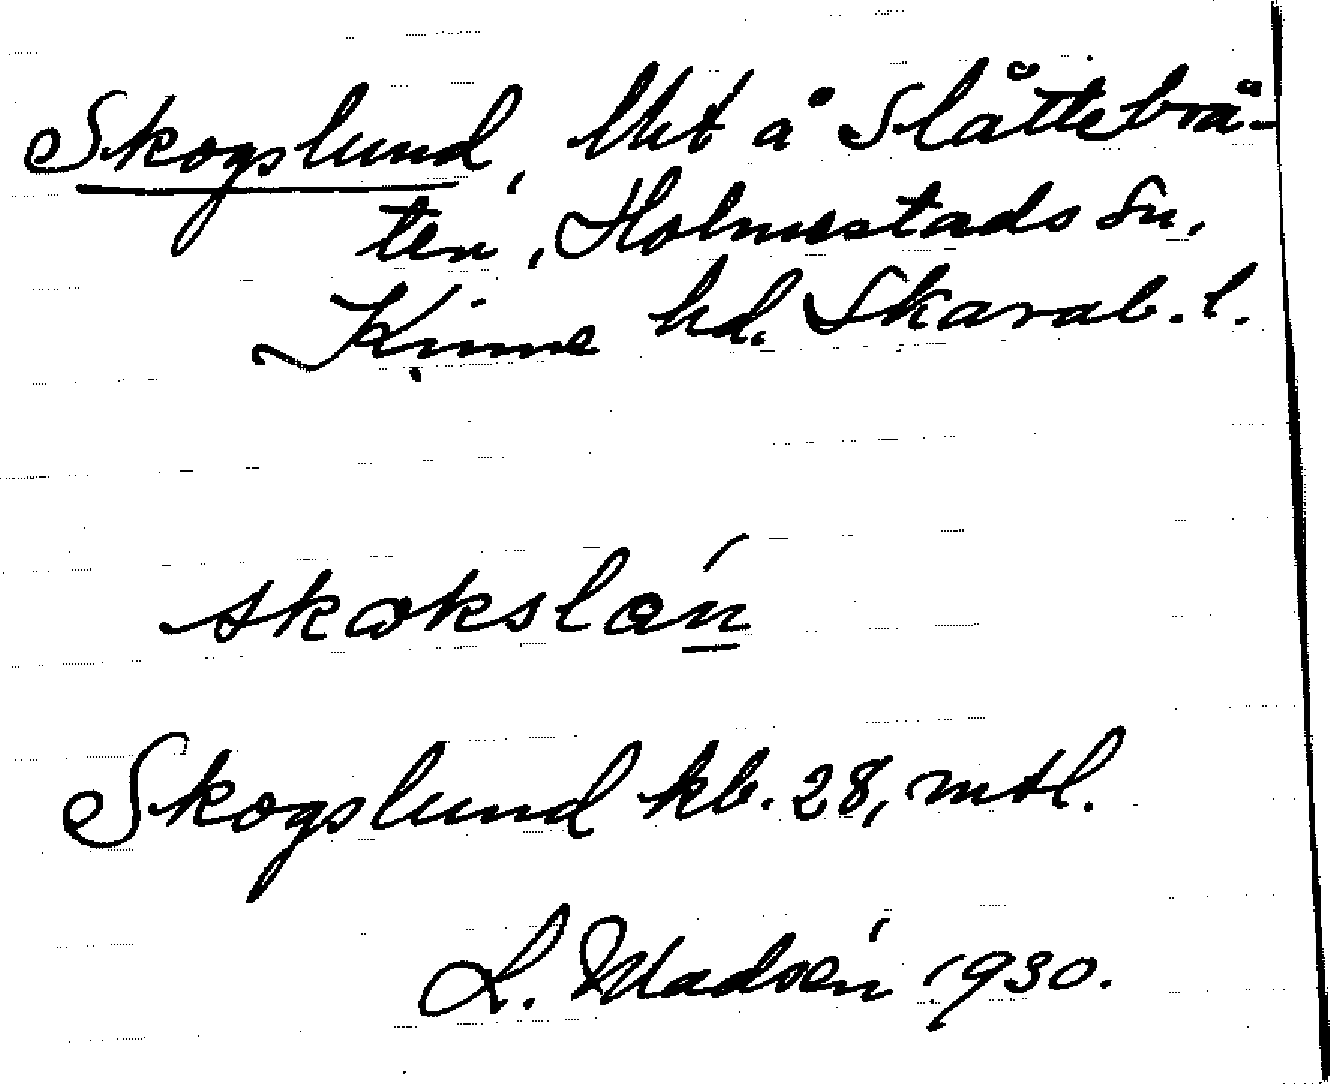 Skogslund, lht å Slåttebrä-
ten, Holmestads sn,
Kinne hd. Skarab. l.
skokslón
Skogslund kb. 28, mtl.
L. Madsén 1930.